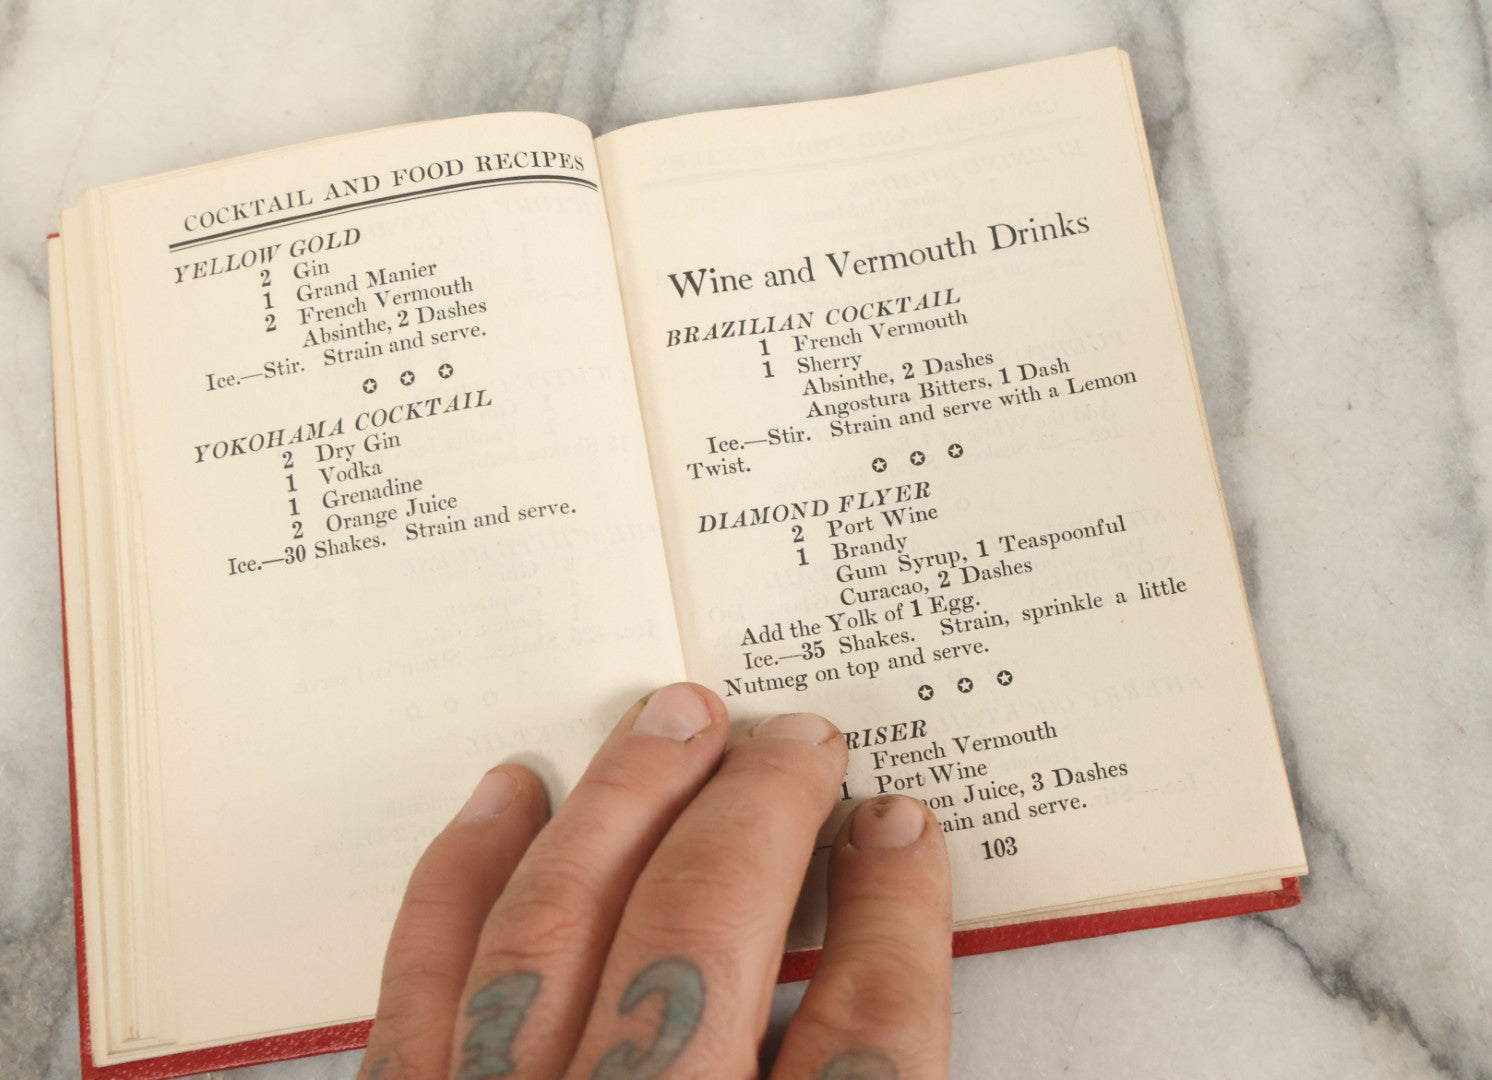 COCKTAIL AND FOOD RECIPES
YELLOW GOLD
2 Gin
1 Grand Manier
2 French Vermouth
Absinthe, 2 Dashes
Ice.—Stir. Strain and serve.
YOKOHAMA COCKTAIL
2 Dry Gin
1 Vodka
1 Grenadine
2 Orange Juice
Ice.—30 Shakes. Strain and serve.
Wine and Vermouth Drinks
BRAZILIAN COCKTAIL
1 French Vermouth
1 Sherry
Absinthe, 2 Dashes
Angostura Bitters, 1 Dash
Ice.—Stir. Strain and serve with a Lemon
Twist.
DIAMOND FLYER
2 Port Wine
1 Brandy
Gum Syrup, 1 Teaspoonful
Curacao, 2 Dashes
Add the Yolk of 1 Egg.
Ice.—35 Shakes. Strain, sprinkle a little
Nutmeg on top and serve.
RISER
French Vermouth
1 Port Wine
on Juice, 3 Dashes
ain and serve.
103